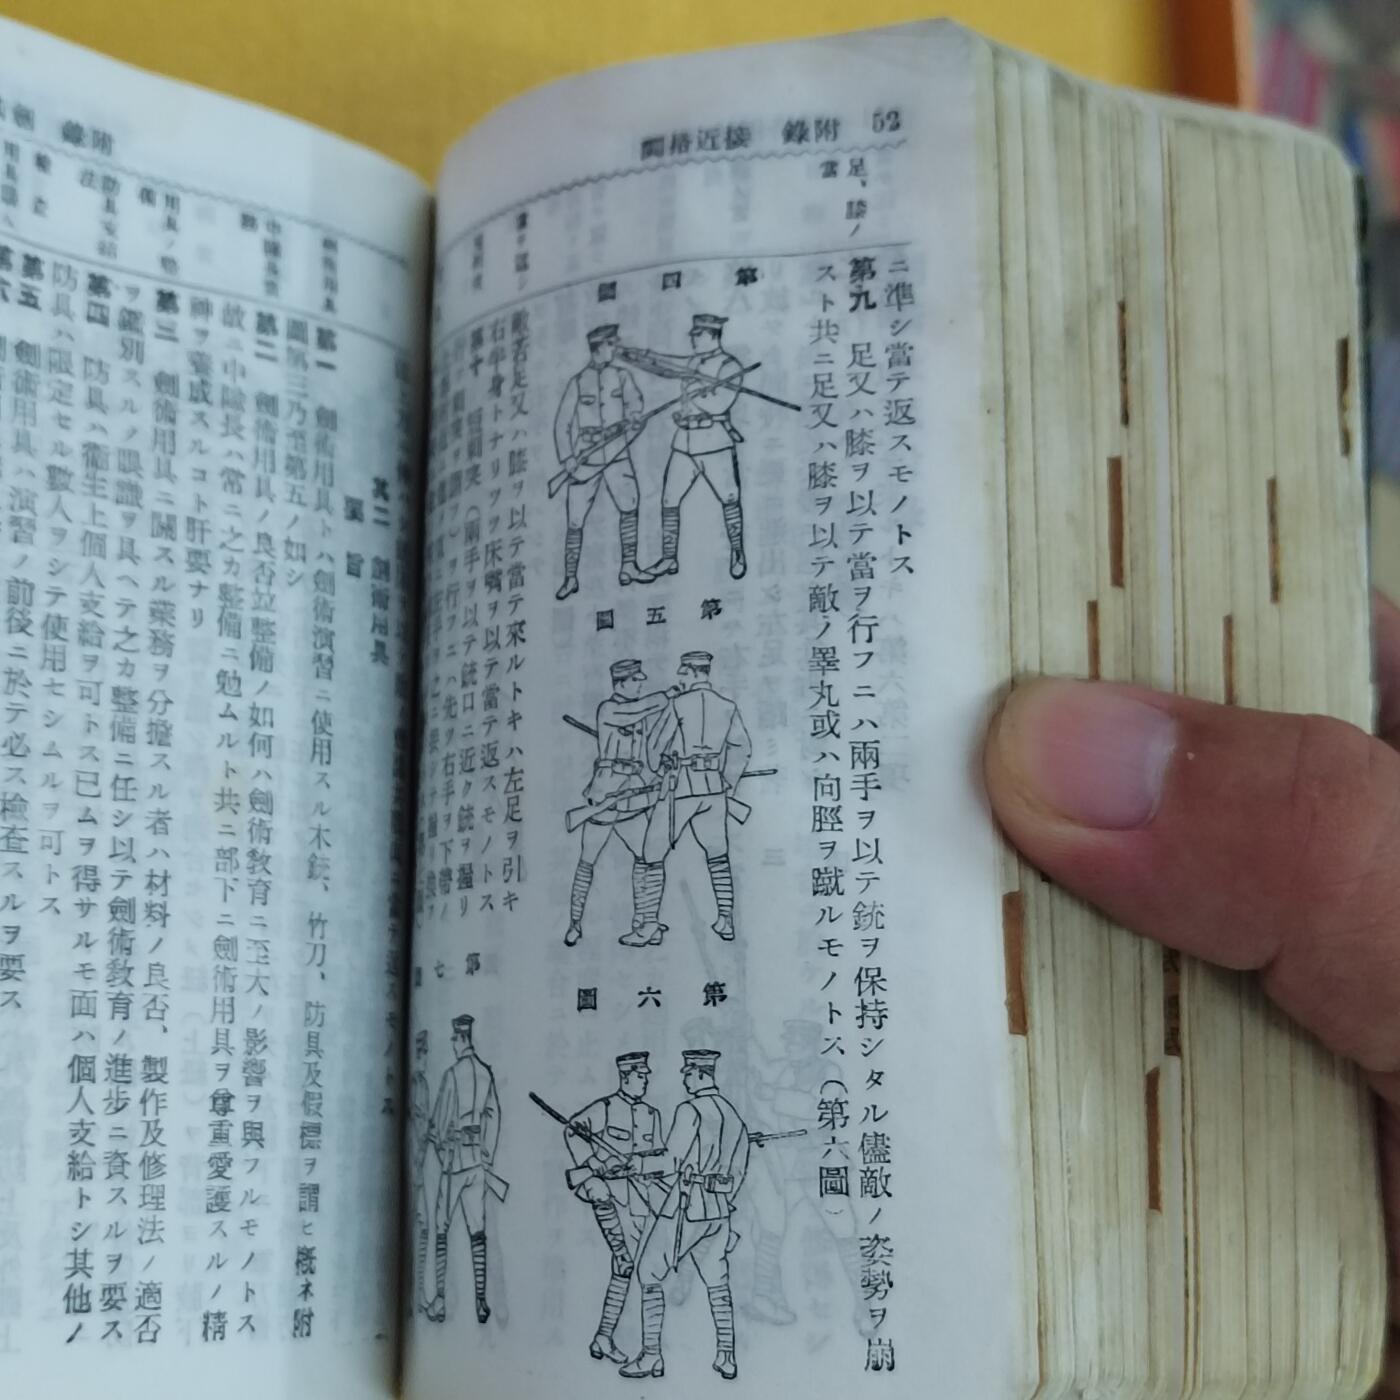 52 附錄 接近格鬪
足、膝ノ
當
ニ準シ當テ返スモノトス
第九 足又ハ膝ヲ以テ當ヲ行フニハ兩手ヲ以テ銃ヲ保持シタル儘敵ノ姿勢ヲ崩
スト共ニ足又ハ膝ヲ以テ敵ノ睪丸或ハ向脛ヲ蹴ルモノトス(第六圖)
第四圖
第五圖
第六圖
敵若足又ハ膝ヲ以テ當テ來ルトキハ左足ヲ引キ
右半身トナリツツ床嘴ヲ以テ當テ返スモノトス
第十
第七
附錄
其二 劍術用具
要旨
第一 劍術用具トハ劍術演習ニ使用スル木銃、竹刀、防具及假標ヲ謂ヒ概ネ附
圖第三乃至第五ノ如シ
第二 劍術用具ノ良否竝整備ノ如何ハ劍術敎育ニ至大ノ影響ヲ與フルモノトス
故ニ中隊長ハ常ニ之カ整備ニ勉ムルト共ニ部下ニ劍術用具ヲ尊重愛護スルノ精
神ヲ養成スルコト肝要ナリ
第三 劍術用具ニ關スル業務ヲ分擔スル者ハ材料ノ良否、製作及修理法ノ適否
ヲ鑑別スルノ眼識ヲ具ヘテ之カ整備ニ任シ以テ劍術敎育ノ進步ニ資スルヲ要ス
第四 防具ハ衞生上個人支給ヲ可トス已ムヲ得サルモ面ハ個人支給トシ其他ノ
防具ハ限定セル數人ヲシテ使用セシムルヲ可トス
第五 劍術用具ハ演習ノ前後ニ於テ必ス檢査スルヲ要ス
第六